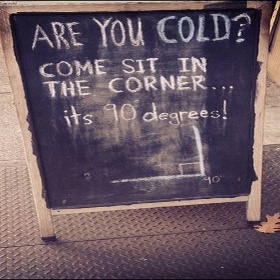 ARE YOU COLD?
COME SIT IN
THE CORNER...
its 90 degrees!
90°